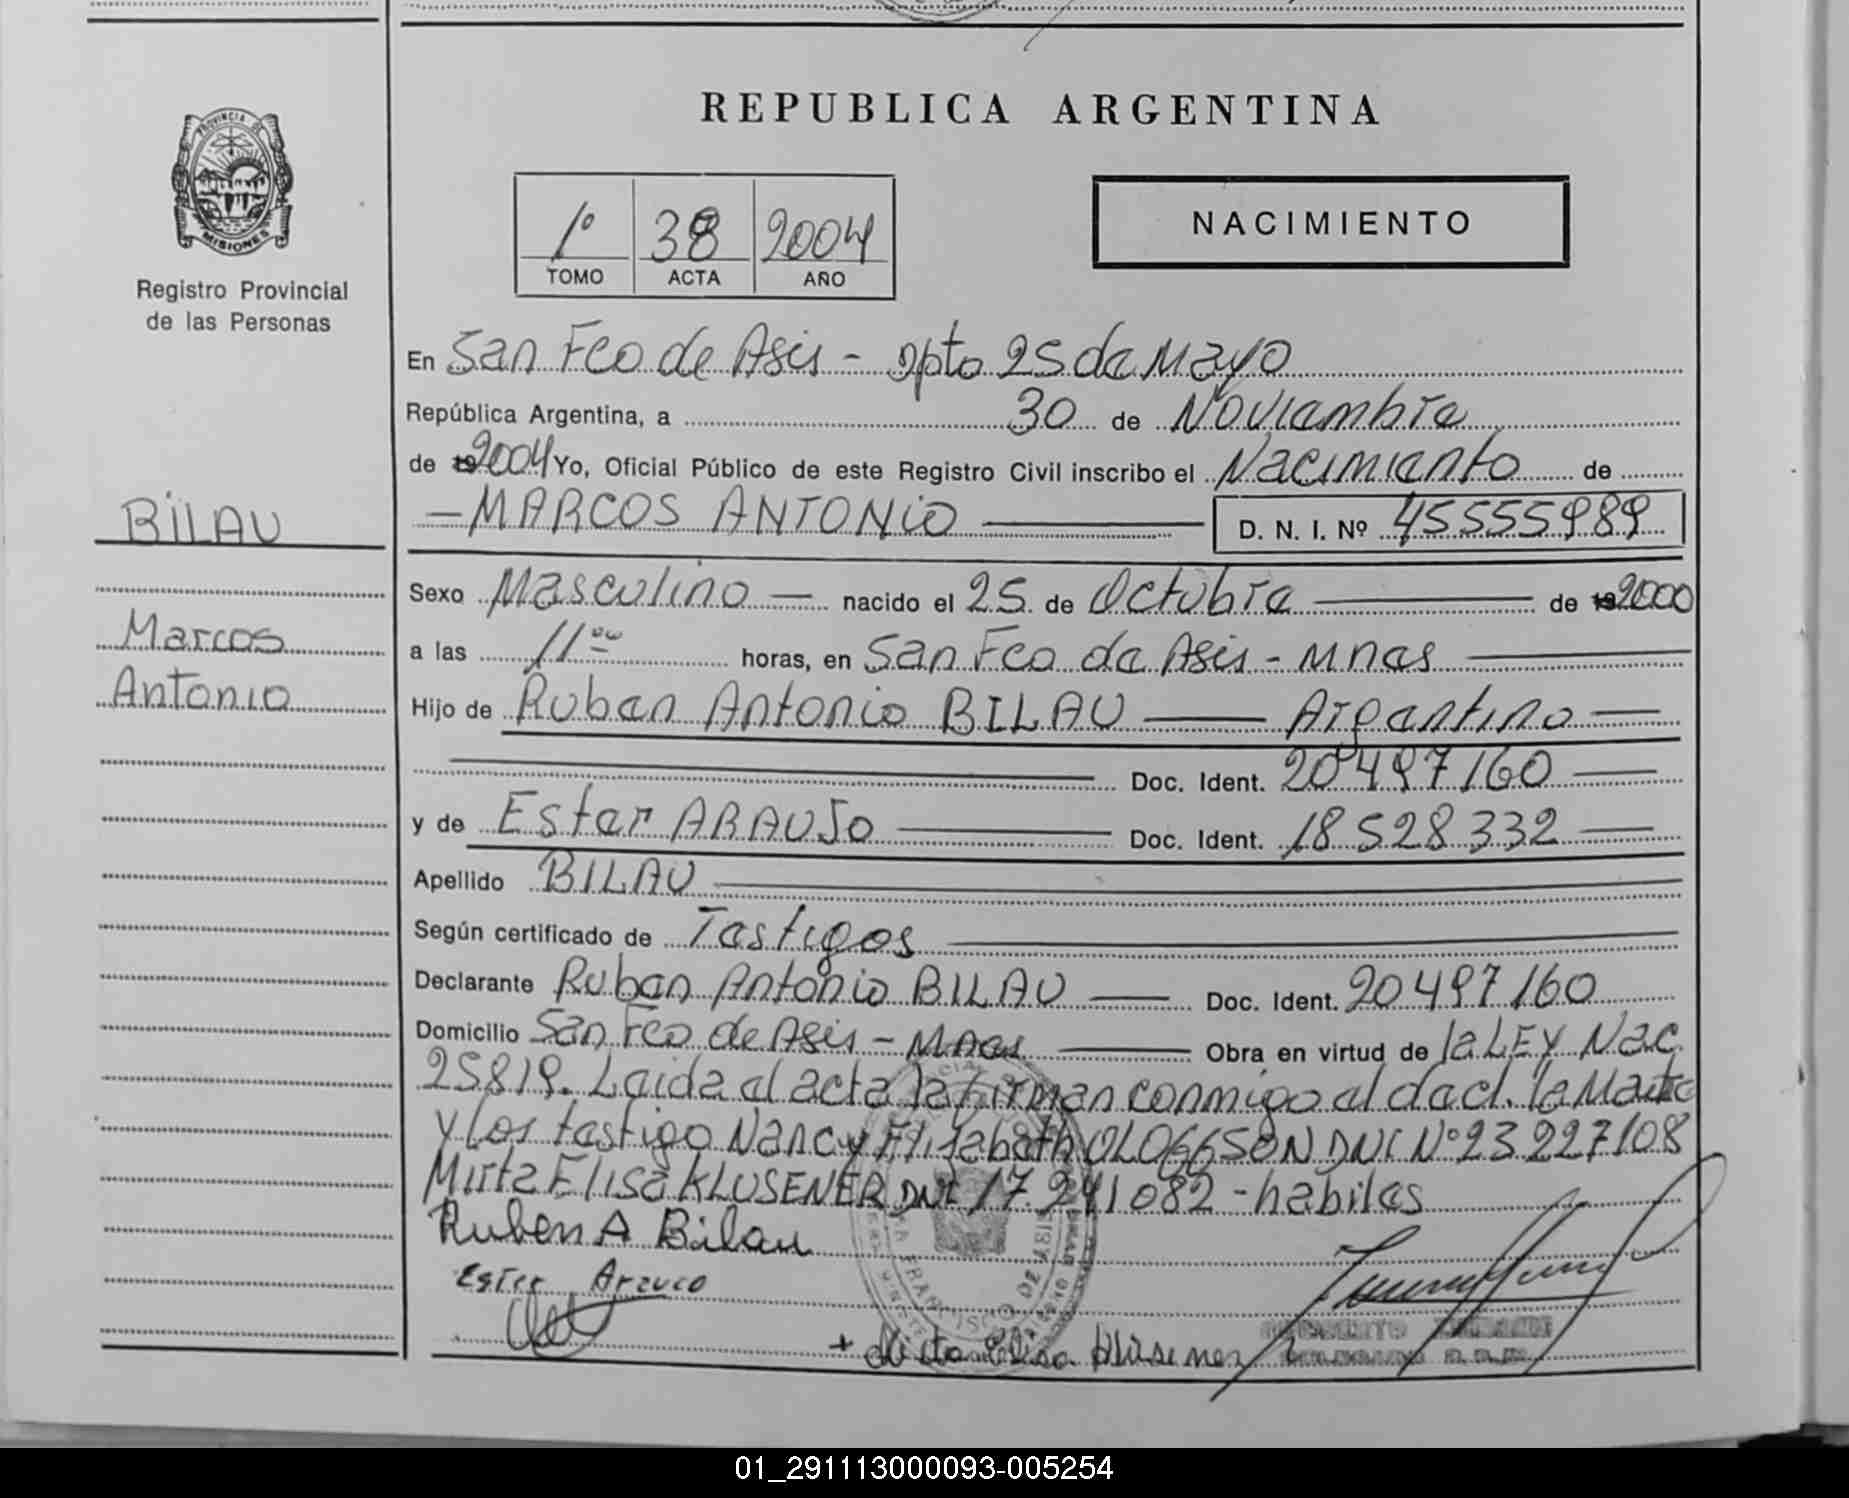 REPUBLICA ARGENTINA
PROVINCIA DE
MISIONES
Registro Provincial
de las Personas
1º 38 2004
TOMO ACTA AÑO
NACIMIENTO
En San Fco de Asis - Dpto 25 de Mayo
República Argentina, a 30 de Noviembre
de 19 2004 Yo, Oficial Público de este Registro Civil inscribo el Nacimiento de
BILAU
- MARCOS ANTONIO D. N. I. Nº 45555989
Sexo Masculino nacido el 25 de Octubre de 19 2000
Marcos
a las 11 00 horas, en San Fco de Asis - Mnes
Antonio
Hijo de Ruben Antonio BILAU Argentino
Doc. Ident. 20497160
y de Ester ARAUJO Doc. Ident. 18528332
Apellido BILAU
Según certificado de Testigos
Declarante Ruben Antonio BILAU Doc. Ident. 20497160
Domicilio San Fco de Asis - Mnes Obra en virtud de la LEY Nac.
25819. Leida el acta la firman conmigo el decl. la Madre
y los testigo Nancy Elisabeth OLOGGSON DNI Nº 23227108
Mirta Elisa KLUSENER DNI 17.241082 - habiles
Ruben A Bilau
Ester Arauco
+ Mirta Elisa Klusener
01_291113000093-005254